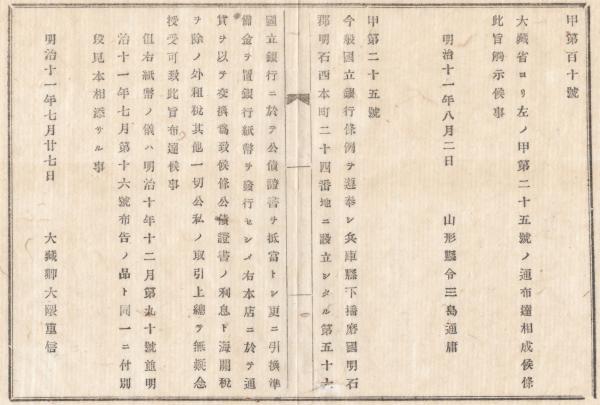 甲第百十號
大藏省ヨリ左ノ甲第二十五號ノ通布達相成候條
此旨觸示候事
明治十一年八月二日
山形縣令三島通庸
甲第二十五號
今般國立銀行條例ヲ遵奉シ兵庫縣下播磨國明石
郡明石西本町二十四番地ニ設立シタル第五十六
國立銀行ニ於テ公債證書ヲ抵當トシ更ニ引換準
備金ヲ置銀行紙幣ヲ發行セシメ右本店ニ於テ通
貨ヲ以テ交換爲致候條公債證書ノ利息ト海關稅
ヲ除ノ外租稅其他一切公私ノ取引上總テ無疑念
授受可致此旨布達候事
但右紙幣ノ儀ハ明治十年十二月第九十號並明
治十一年七月第十六號布告ノ品ト同一ニ付別
段見本相添サル事
明治十一年七月廿七日
大藏卿大隈重信